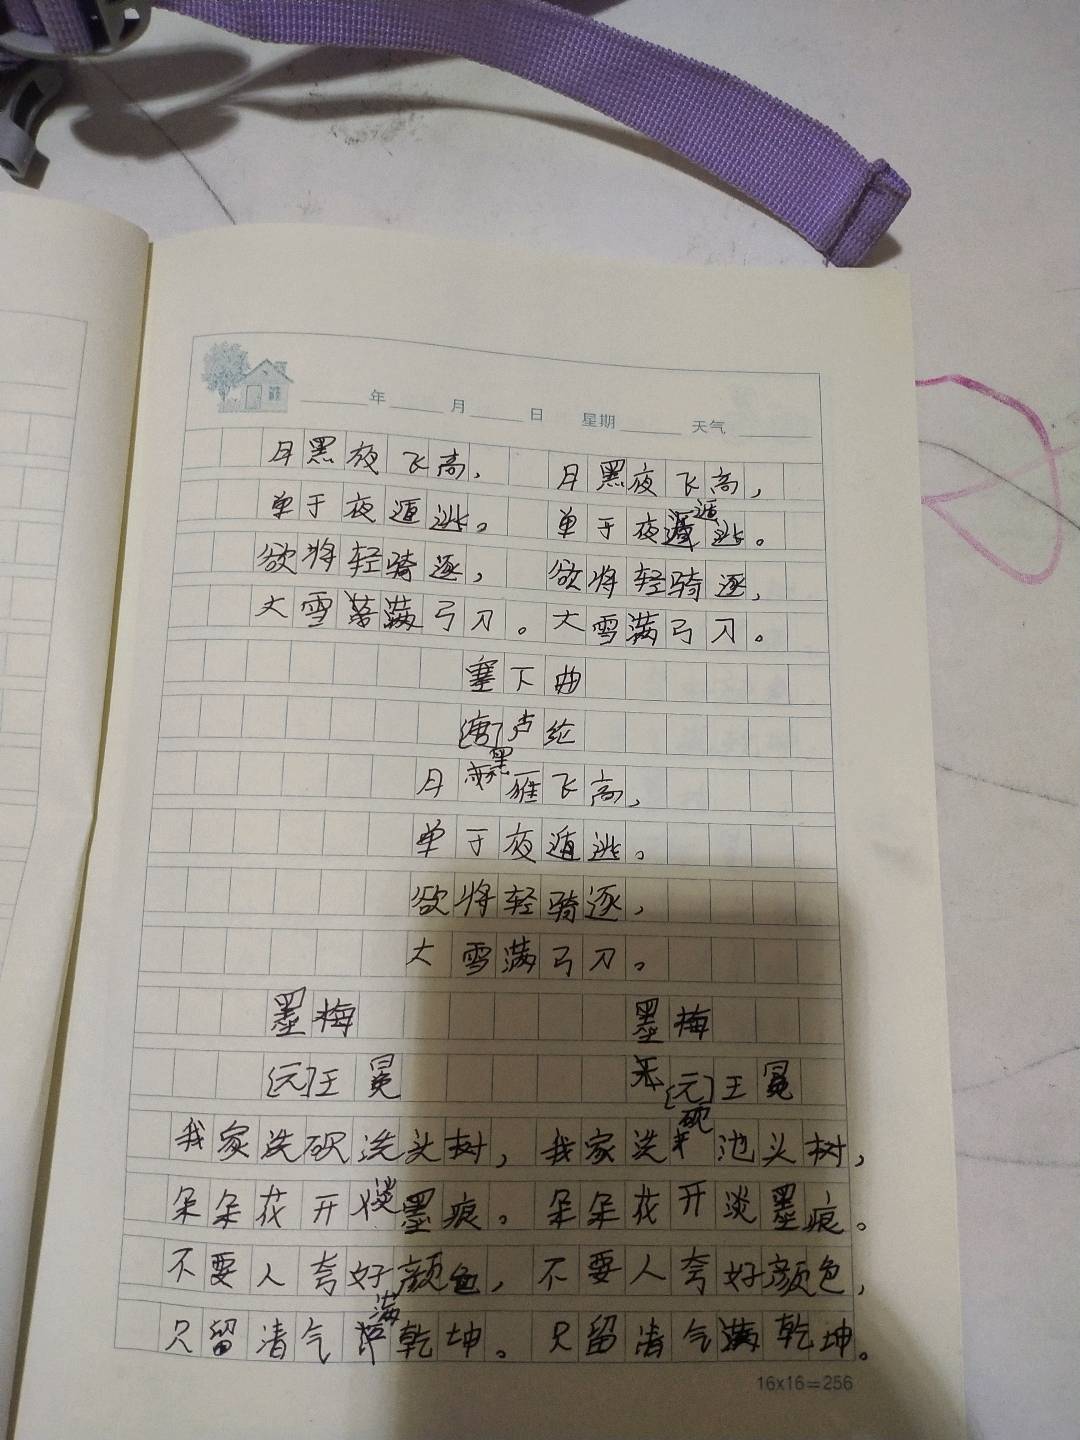 年 月 日 星期 天气
月黑夜飞高, 月黑夜飞高,
单于夜遁逃。 单于夜遁逃。
欲将轻骑逐, 欲将轻骑逐,
大雪满弓刀。 大雪满弓刀。
塞下曲
[唐]卢纶
月黑雁飞高,
单于夜遁逃。
欲将轻骑逐,
大雪满弓刀。
墨梅 墨梅
[元]王冕 [元]王冕
我家洗砚洗头树, 我家洗砚池头树,
朵朵花开淡墨痕。 朵朵花开淡墨痕。
不要人夸好颜色, 不要人夸好颜色,
只留清气满乾坤。 只留清气满乾坤。
16x16=256